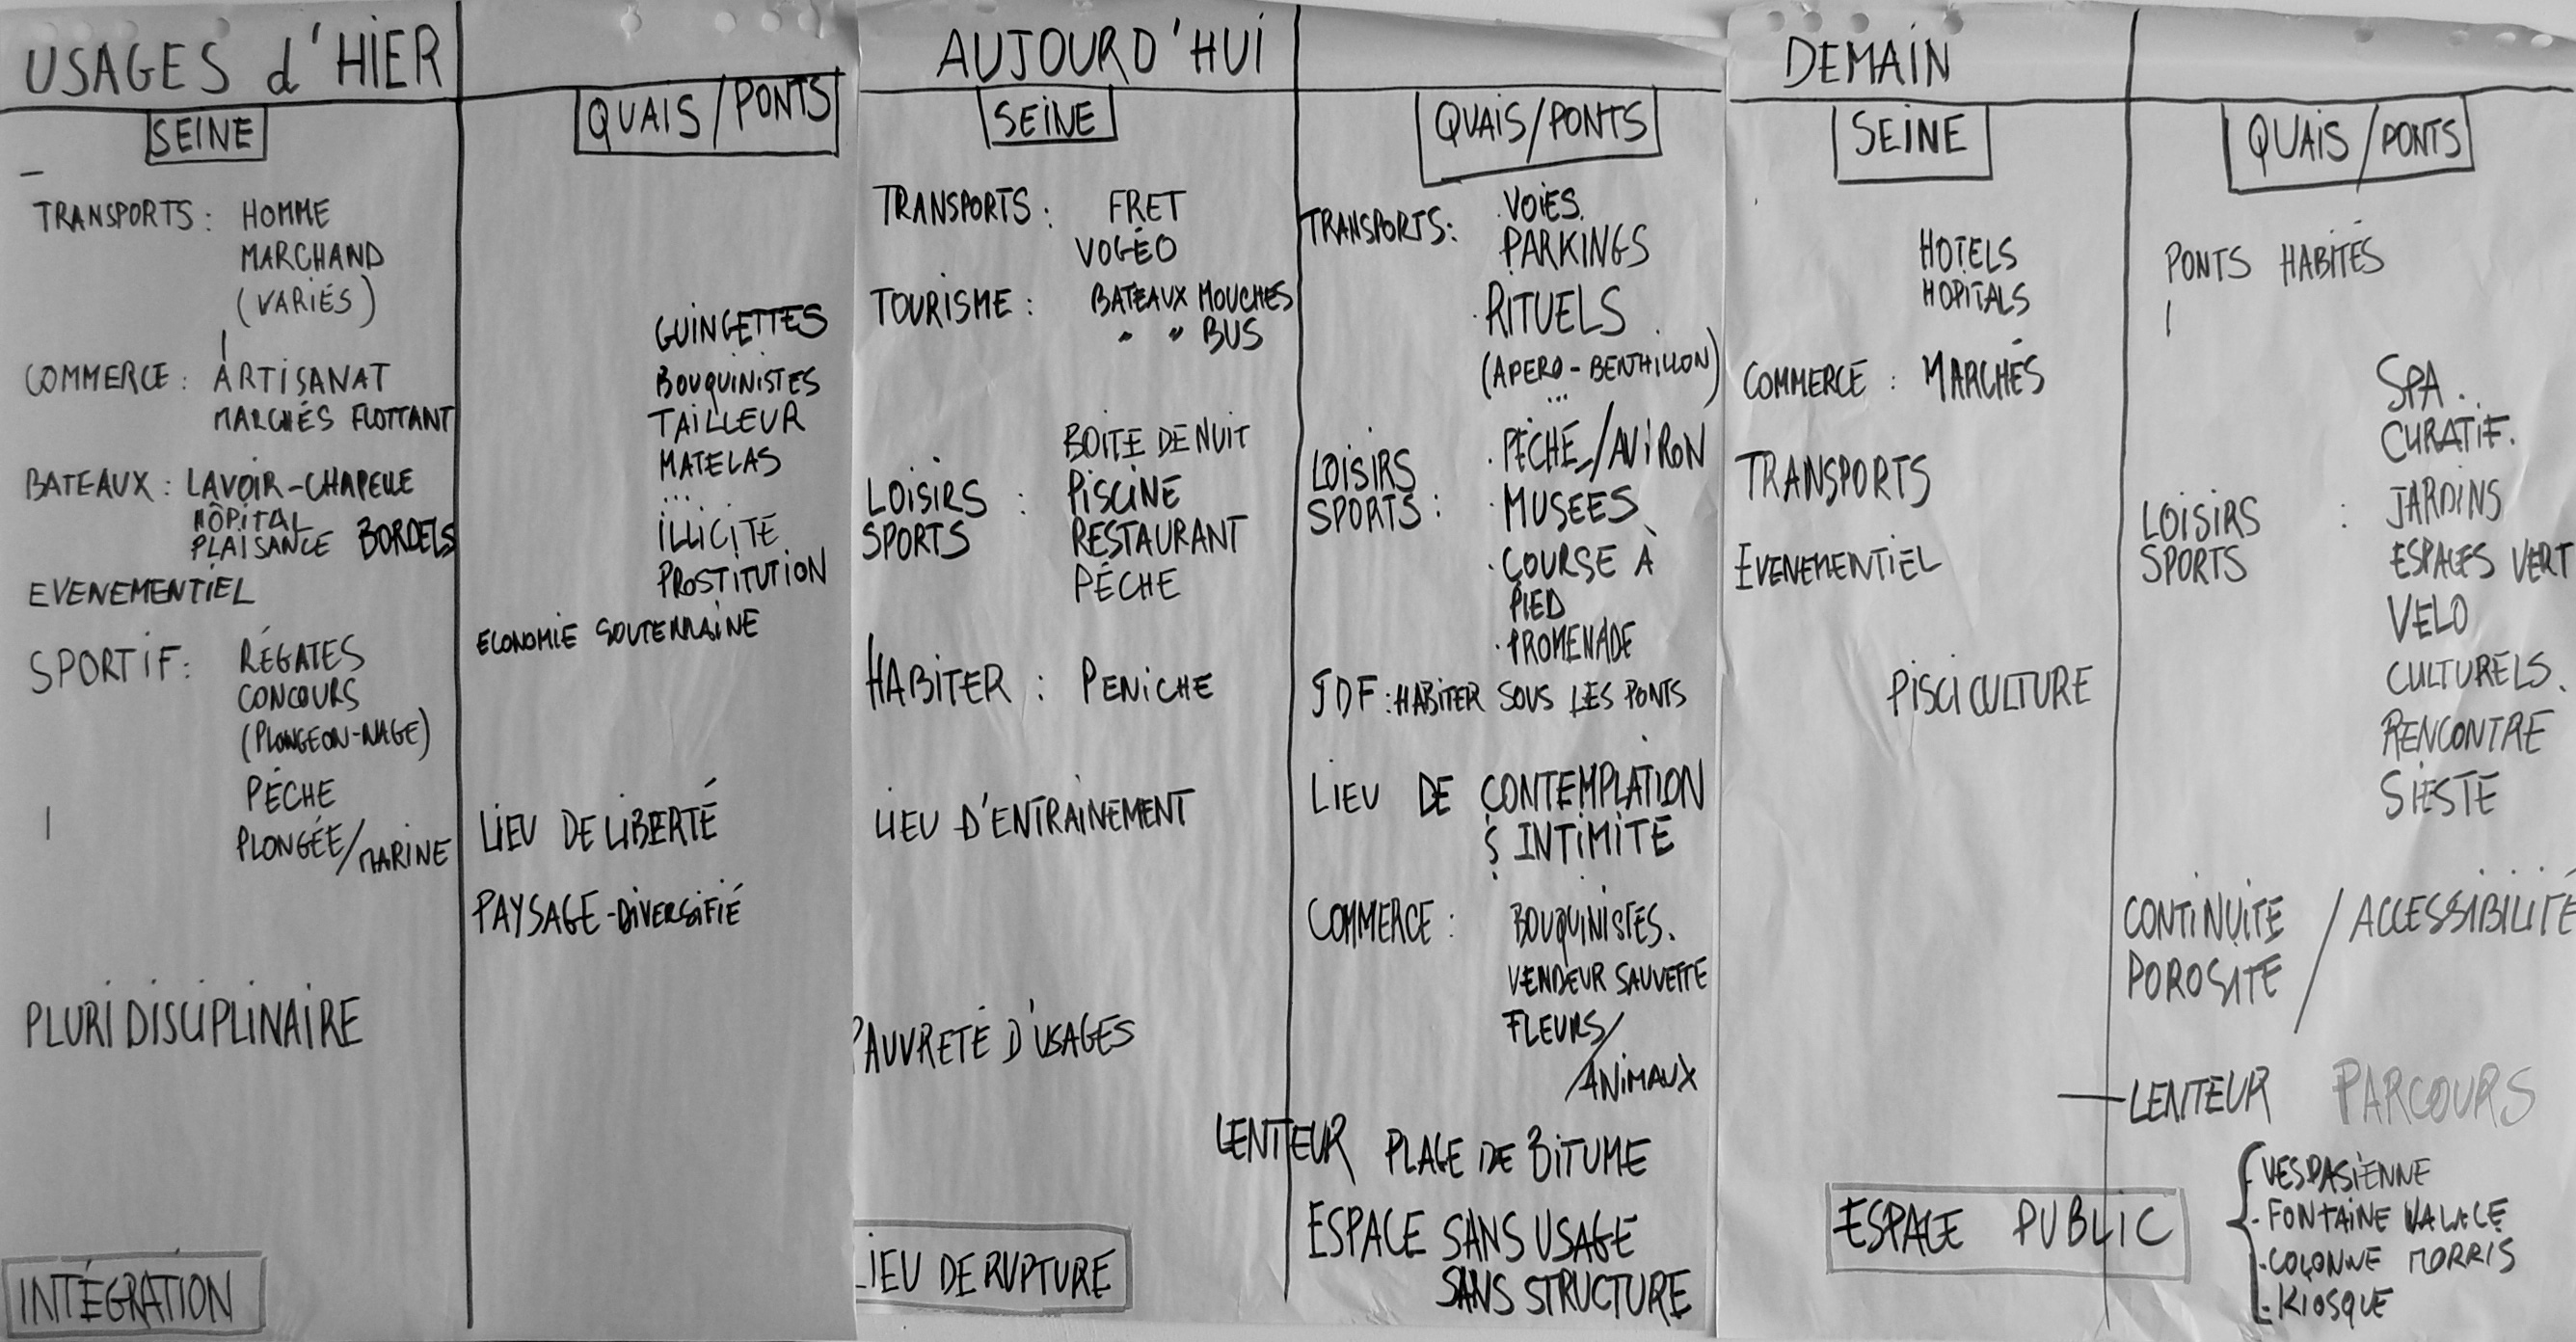 USAGES d'HIER
SEINE
TRANSPORTS : HOMME
MARCHAND
(VARIÉS)
COMMERCE : ARTISANAT
MARCHÉS FLOTTANT
BATEAUX : LAVOIR-CHAPELLE
HÔPITAL
PLAISANCE BORDELS
EVENEMENTIEL
SPORTIF : RÉGATES
CONCOURS
(PLONGEON-NAGE)
PÊCHE
PLONGÉE/MARINE
PLURIDISCIPLINAIRE
INTÉGRATION
QUAIS/PONTS
GUINGETTES
BOUQUINISTES
TAILLEUR
MATELAS
...
ILLICITE
PROSTITUTION
ECONOMIE SOUTERRAINE
LIEU DE LIBERTÉ
PAYSAGE-DIVERSIFIÉ
AUJOURD'HUI
SEINE
TRANSPORTS : FRET
VOGÉO
TOURISME : BATEAUX MOUCHES
" " BUS
BOITE DE NUIT
LOISIRS : PISCINE
SPORTS RESTAURANT
PÊCHE
HABITER : PENICHE
LIEU D'ENTRAINEMENT
PAUVRETÉ D'USAGES
LIEU DE RUPTURE
QUAIS/PONTS
TRANSPORTS : . VOIES.
PARKINGS
. RITUELS
(APERO - BENTHILLON)
...
LOISIRS . PÊCHE/AVIRON
SPORTS : . MUSEES
. COURSE À
PIED
. PROMENADE
SDF : HABITER SOUS LES PONTS
LIEU DE CONTEMPLATION
& INTIMITÉ
COMMERCE : BOUQUINISTES.
VENDEUR SAUVETTE
FLEURS/
ANIMAUX
LENTEUR PLAGE DE BITUME
ESPACE SANS USAGE
SANS STRUCTURE
DEMAIN
SEINE
HOTELS
HOPITALS
COMMERCE : MARCHÉS
TRANSPORTS
EVENEMENTIEL
PISCICULTURE
ESPACE PUBLIC
QUAIS/PONTS
PONTS HABITÉS
SPA.
CURATIF.
LOISIRS : JARDINS
SPORTS ESPACES VERT
VELO
CULTURELS.
RENCONTRE
SIESTE
CONTINUITÉ / ACCESSIBILITÉ
POROSITE
LENTEUR PARCOURS
- VESPASIENNE
- FONTAINE WALACE
- COLONNE MORRIS
- KIOSQUE